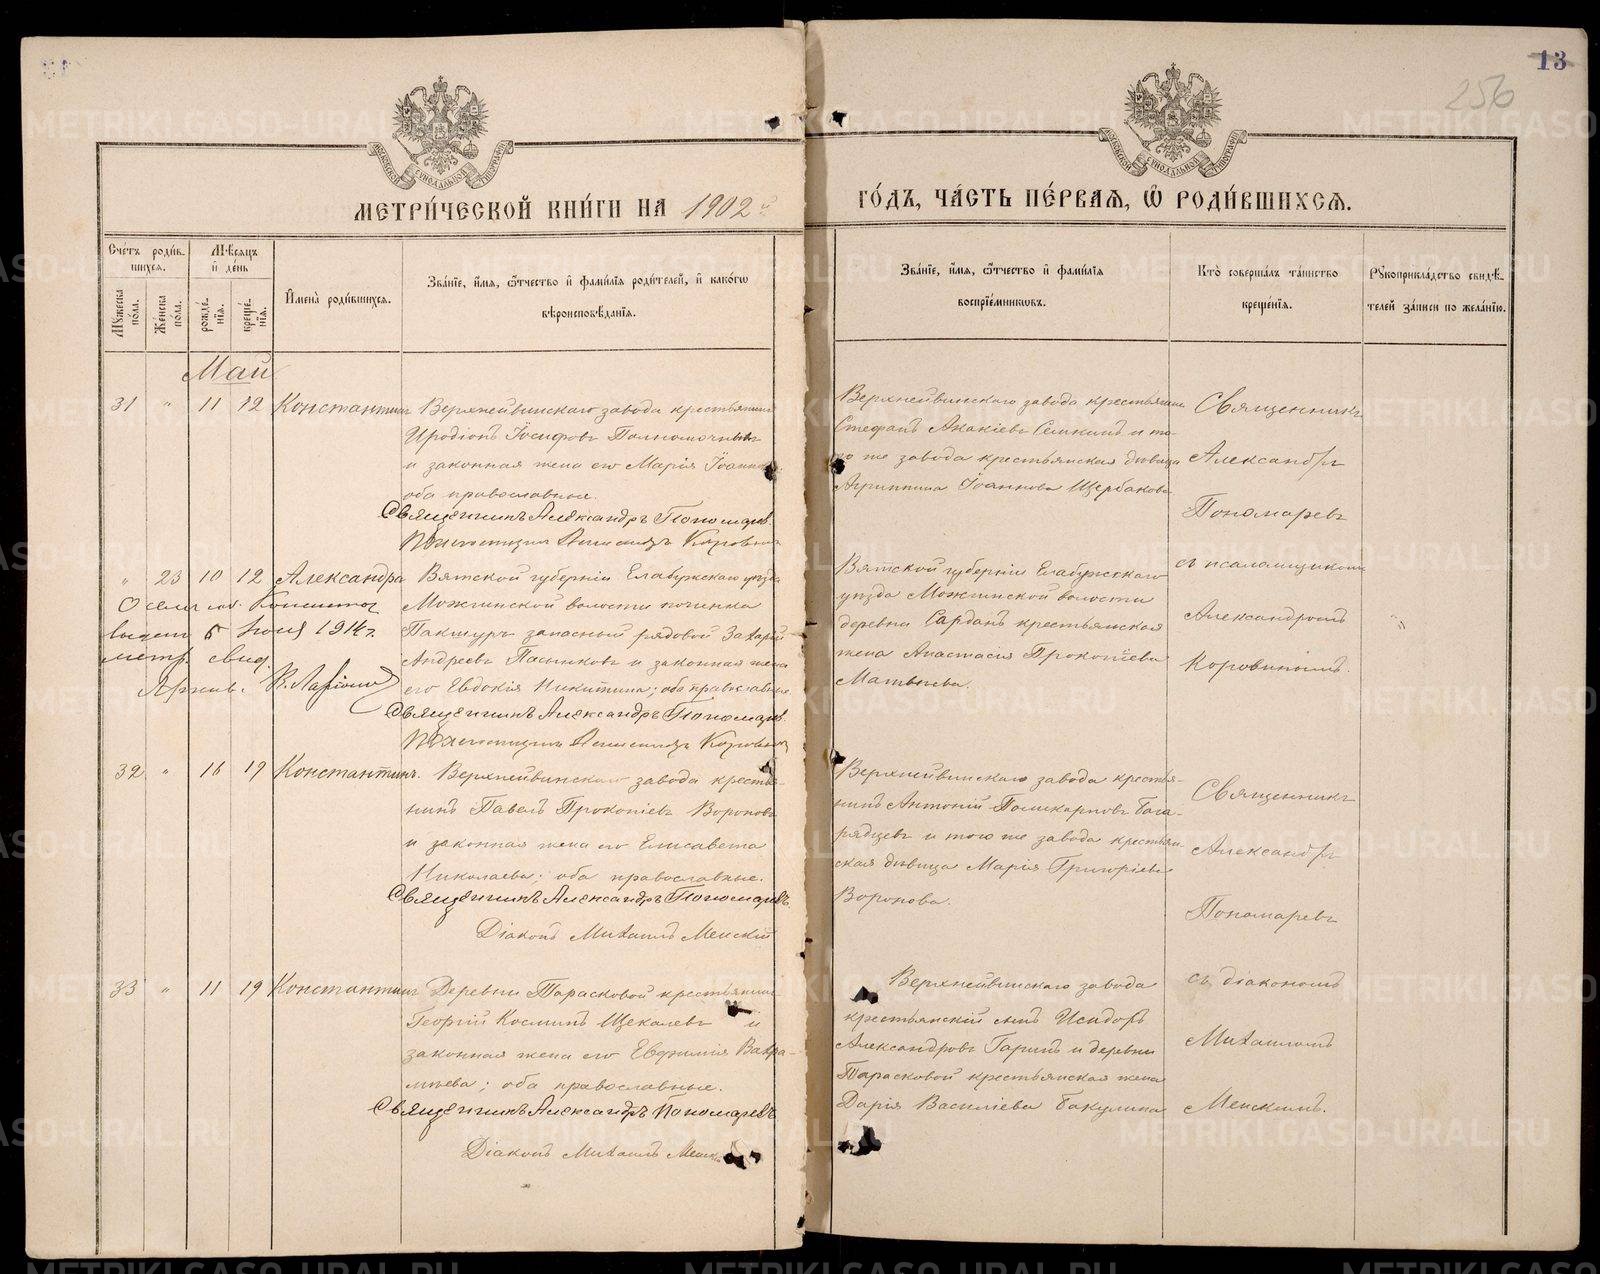 13
256
МЕТРИ́ЧЕСКОЙ КНИ́ГИ НА 1902 й
ГО́ДЪ, ЧА́СТЬ ПЕ́РВАЯ, Ѽ РОДИ́ВШИХСЯ.
Сче́тъ роди́в-
шихся.
Му́жеска по́ла.
Же́нска по́ла.
Мѣ́сяцъ и де́нь
рожде́нїя.
креще́нїя.
Имена̀ роди́вшихся.
Зва́нїе, и́мя, ѻ҆́тчество и҆ фами́лїя роди́телей, и҆ како́гѡ
вѣроисповѣ́данїя.
Зва́нїе, и́мя, ѻ҆́тчество и҆ фами́лїя
воспрїе́мникѡвъ.
Кто̀ соверша́лъ та́инство
креще́нїя.
Рꙋкоприкла́дство свидѣ́-
телей за́писи по жела́нїю.
Май
31 " 11 12 Константинъ
Верхнейвинскаго завода крестьянинъ
Иродіонъ Іосифовъ Полномочныхъ
и законная жена его Марія Іоаннова
оба православные.
Священникъ Александръ Пономаревъ.
Псаломщикъ Александръ Коровинъ
Верхнейвинскаго завода крестьянинъ
Стефанъ Акакіевъ Семкинъ и то-
го же завода крестьянская дѣвица
Агриппина Іоаннова Щербакова
Священникъ
Александръ
Пономаревъ
съ псаломщикомъ
Александромъ
Коровинымъ.
" 23 10 12 Александра
Вятской губерніи Елабужскаго уѣзда
Можгинской волости починка
Пакшуръ запасный рядовой Захарій
Андреевъ Пасынковъ и законная жена
его Евдокія Никитина; оба православные.
Священникъ Александръ Пономаревъ.
Псаломщикъ Александръ Коровинъ
выдет 5 Іюня 1914 г.
метр. свид.
Архив.
Вятской губерніи Елабужскаго
уѣзда Можгинской волости
деревни Сарданъ крестьянская
жена Анастасія Прокопіева
Матвѣева.
32 " 16 19 Константинъ.
Верхнейвинскаго завода крестья-
нинъ Павелъ Прокопіевъ Вороновъ
и законная жена его Елисавета
Николаева; оба православные.
Священникъ Александръ Пономаревъ.
Діаконъ Михаилъ Менскій
Верхнейвинскаго завода крестья-
нинъ Антоній Поликарповъ Бага-
рядцевъ и того же завода крестьян-
ская дѣвица Марія Григоріева
Воронова.
Священникъ
Александръ
Пономаревъ
съ діакономъ
Михаиломъ
Менскимъ.
33 " 11 19 Константинъ
Деревни Тарасковой крестьянинъ
Георгій Косминъ Щекалевъ и
законная жена его Евфимія Вахра-
мѣева; оба православные.
Священникъ Александръ Пономаревъ
Діаконъ Михаилъ Менскій
Верхнейвинскаго завода
крестьянскій сынъ Исидоръ
Александровъ Гаринъ и деревни
Тарасковой крестьянская жена
Дарія Василіева Бакулина
METRIKI.GASO-URAL.RU